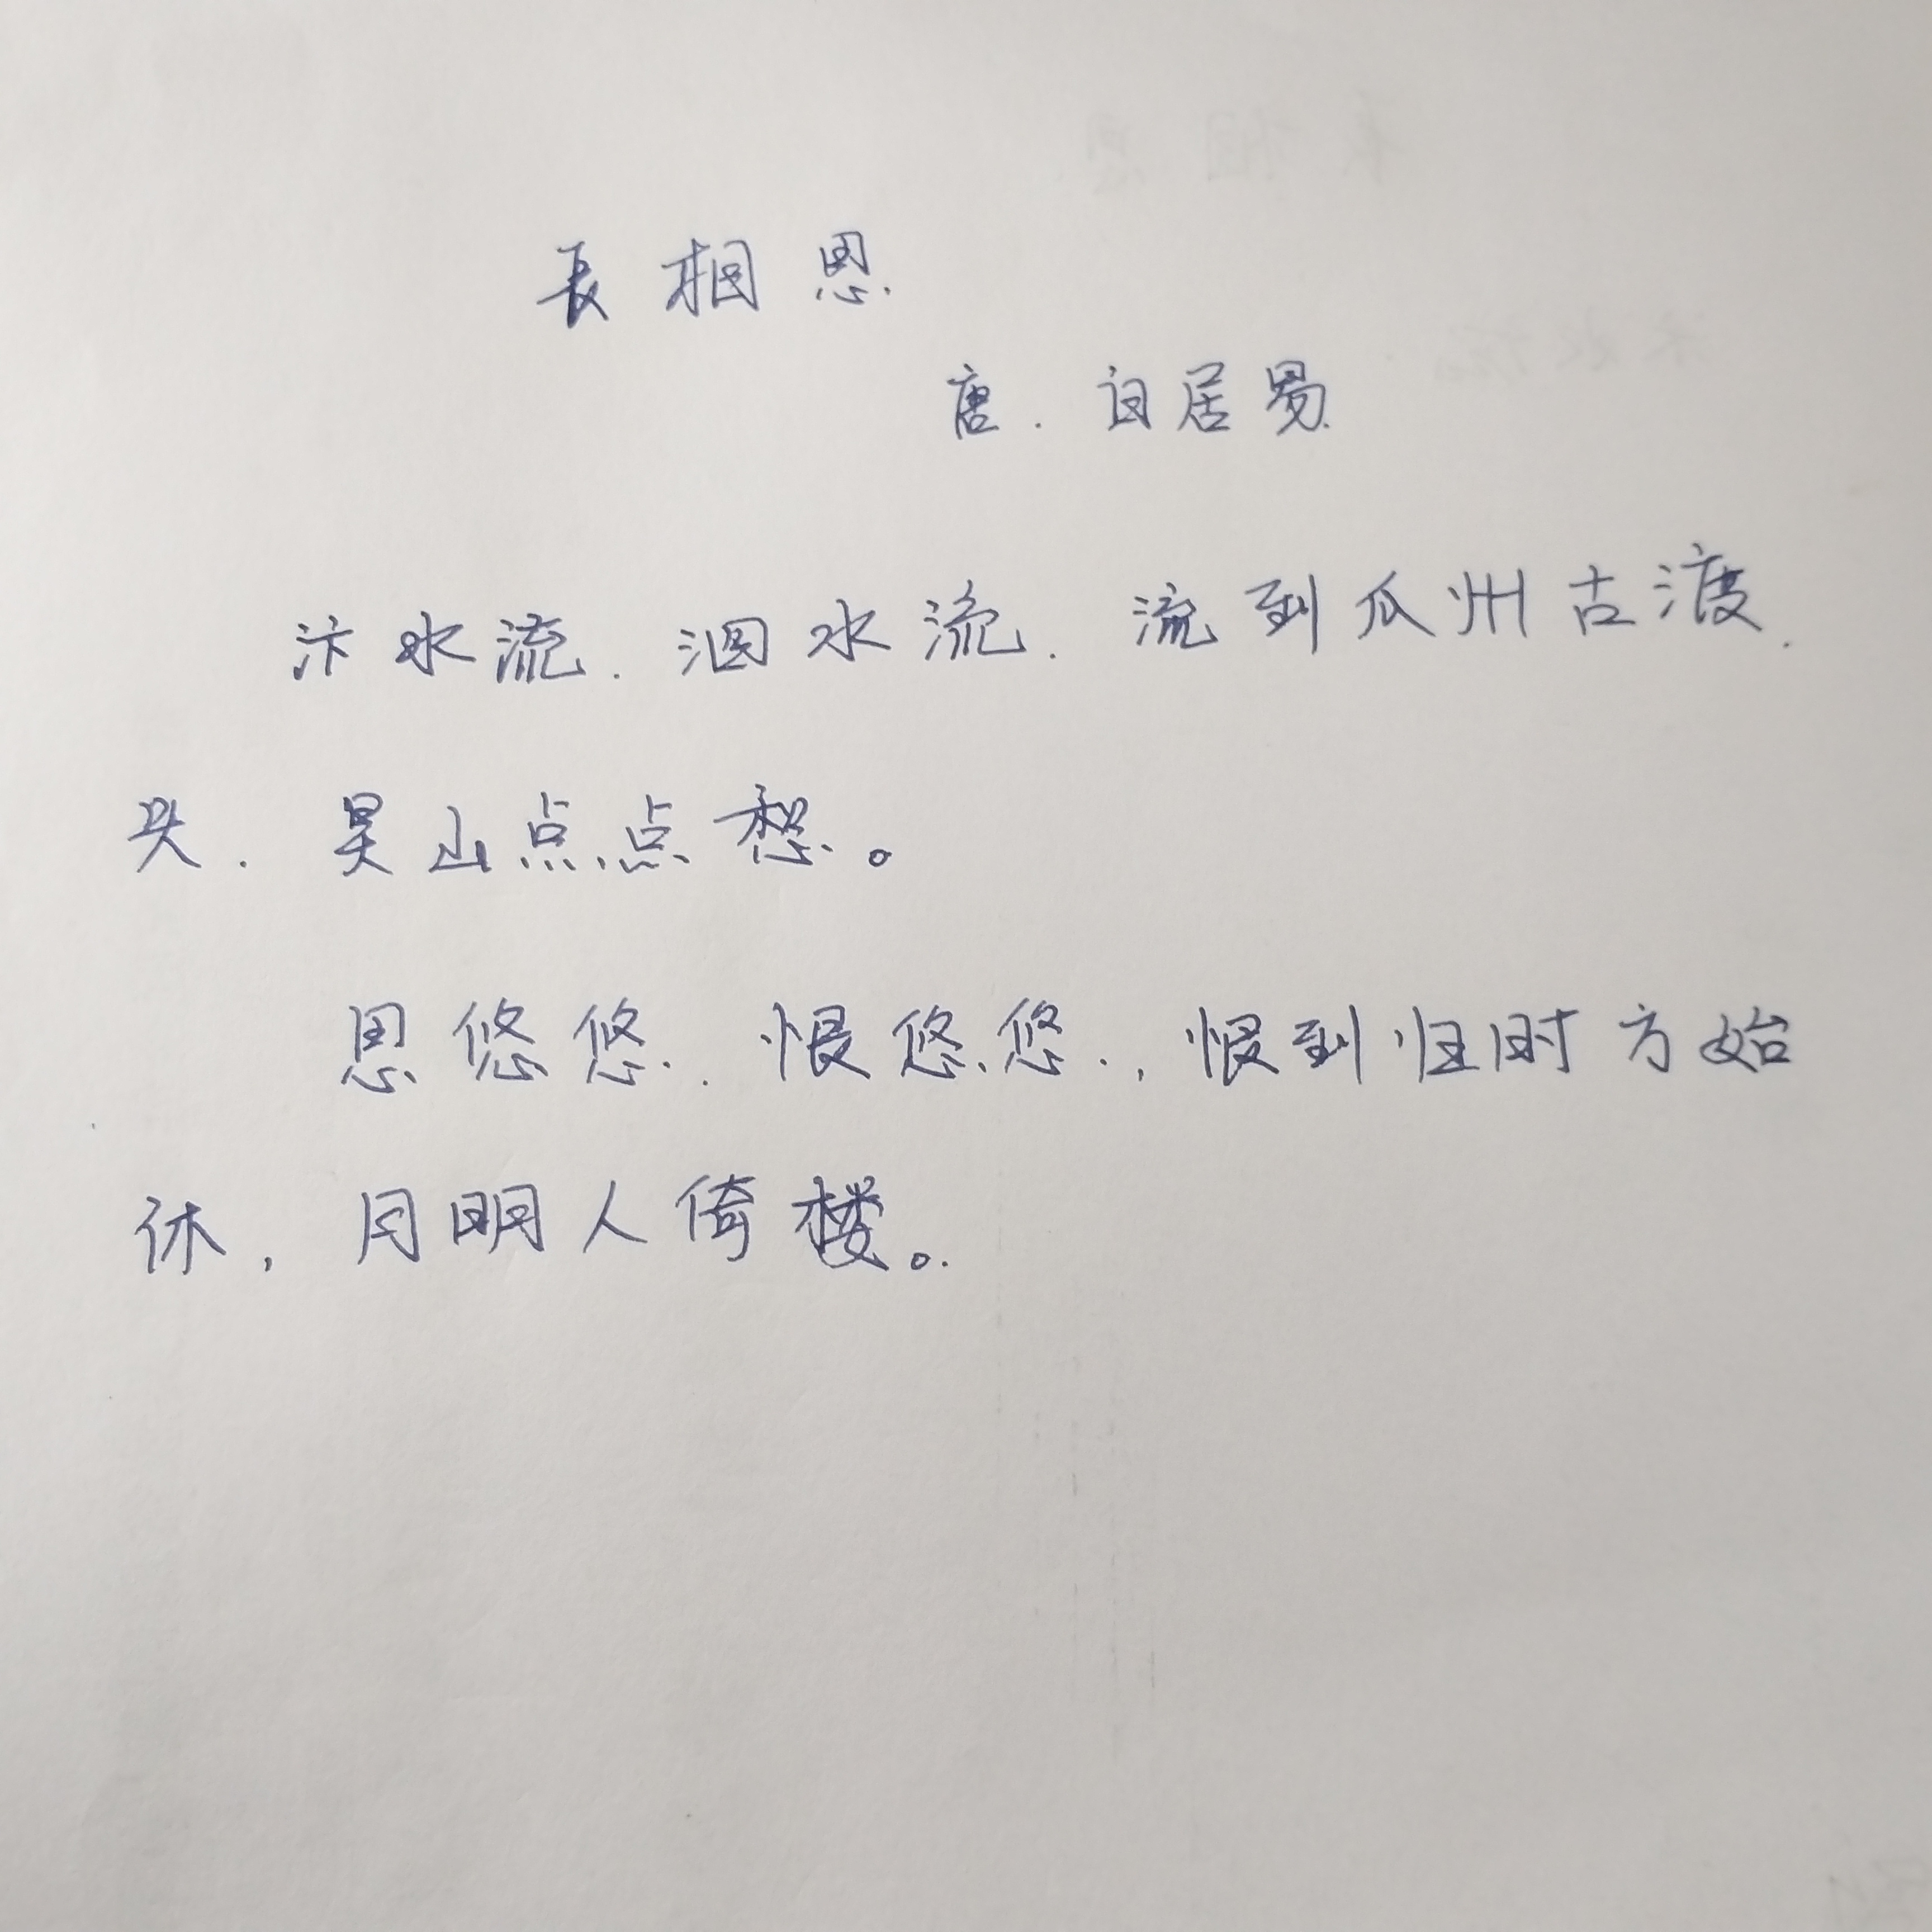 长相思
唐.白居易
汴水流.泗水流.流到瓜州古渡.
头.吴山点点愁。
思悠悠.恨悠悠.,恨到归时方始
休,月明人倚楼。